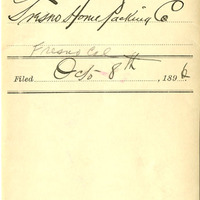 Fresno Home Packing Co
Fresno Cal
Filed Oct 8th, 1896